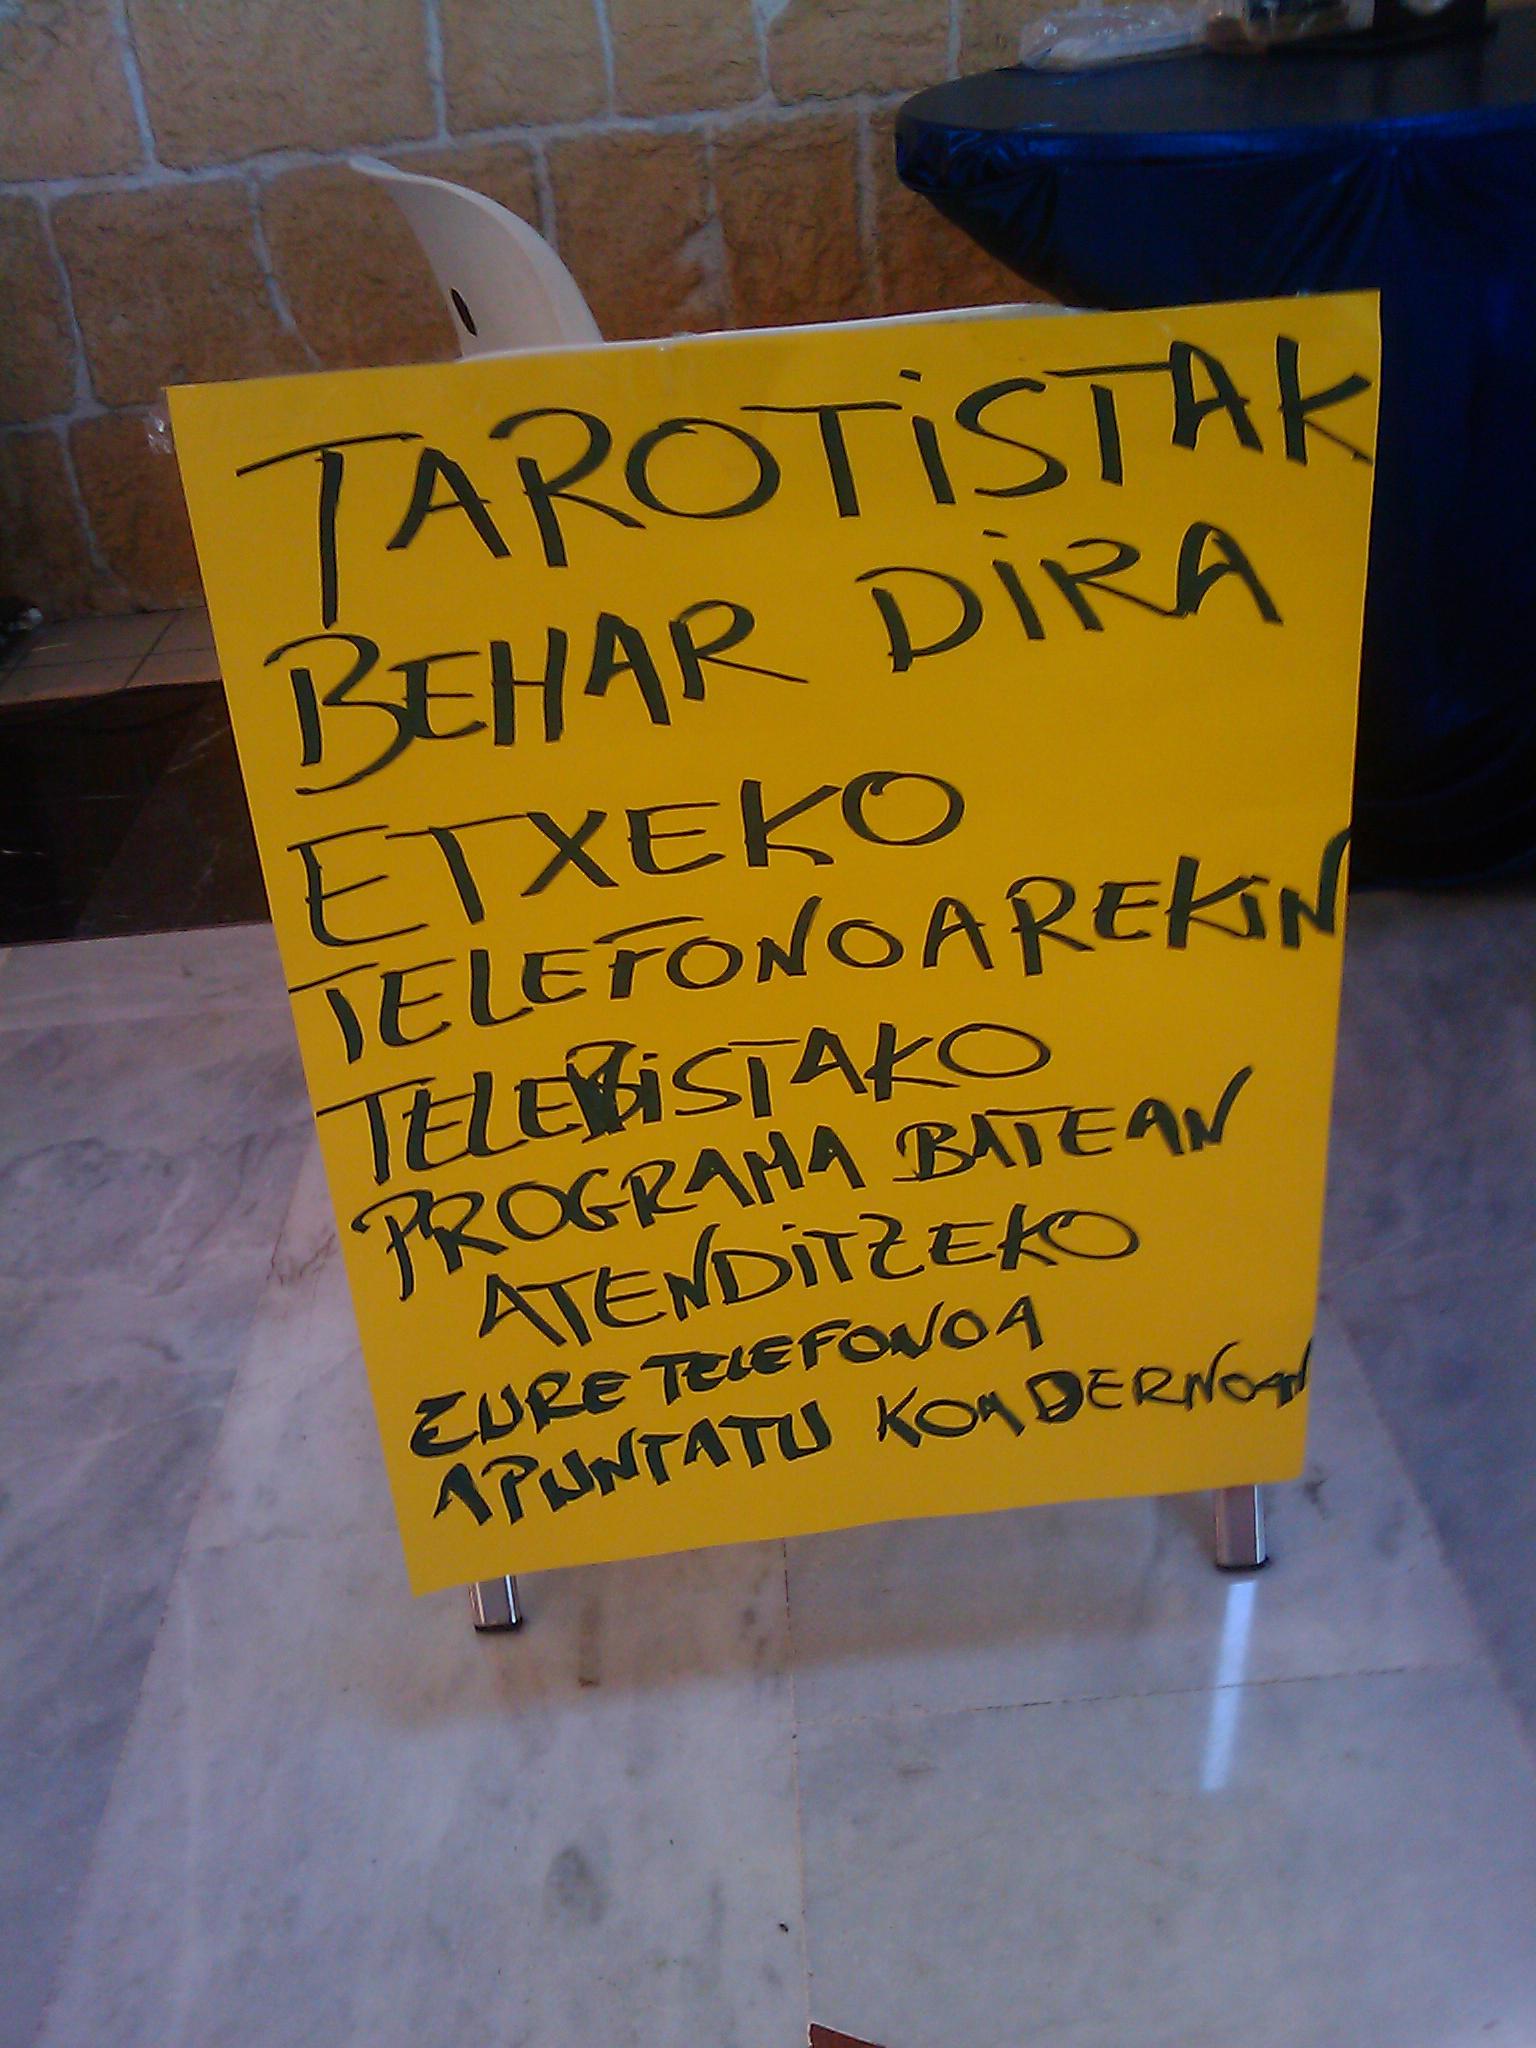 TAROTiSTAK
BEHAR DiRA
ETXEKO
TELEFONOAREKiN
TELEBiSTAKO
PROGRAMA BATEAN
ATENDiTZEKO
ZURE TELEFONOA
APUNTATU KOADERNOAN